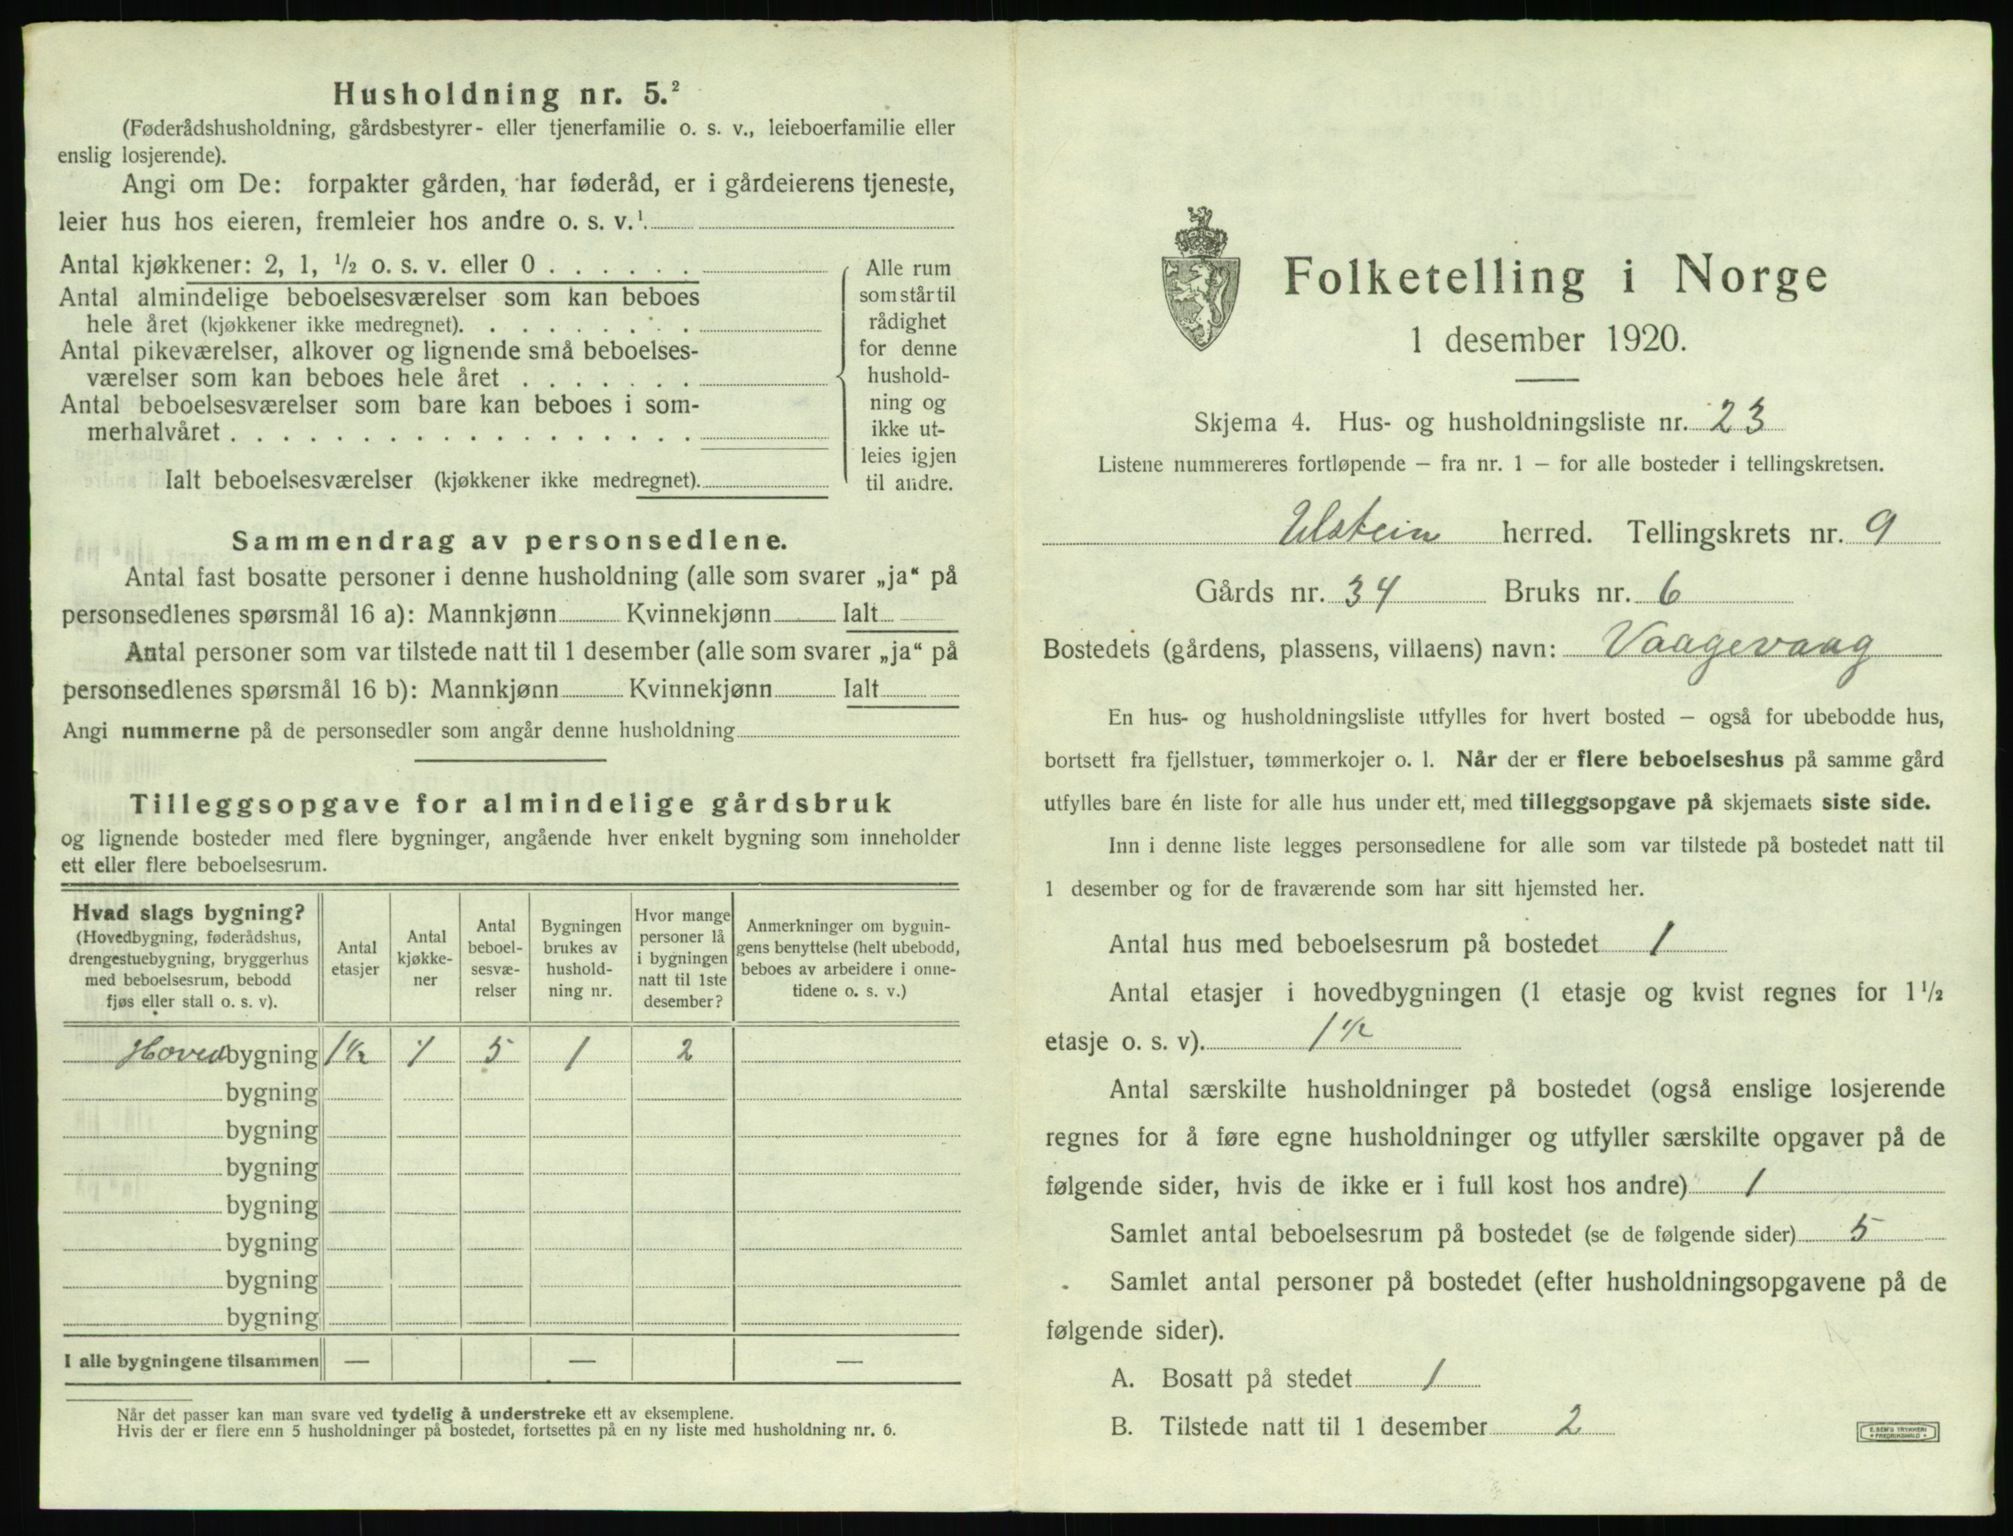 Husholdning nr. 5.²
(Føderådshusholdning, gårdsbestyrer- eller tjenerfamilie o. s. v., leieboerfamilie eller
enslig losjerende).
Angi om De: forpakter gården, har føderåd, er i gårdeierens tjeneste,
leier hus hos eieren, fremleier hos andre o. s. v.¹
Antal kjøkkener: 2, 1, ½ o. s. v. eller 0 . . . . . .
Antal almindelige beboelsesværelser som kan beboes
hele året (kjøkkener ikke medregnet). . . . . . . . .
Antal pikeværelser, alkover og lignende små beboelses-
værelser som kan beboes hele året . . . . . . .
Antal beboelsesværelser som bare kan beboes i som-
merhalvåret . . . . . . . . . . . . . . . . . .
Ialt beboelsesværelser (kjøkkener ikke medregnet).
Alle rum
som står til
rådighet
for denne
hushold-
ning og
ikke ut-
leies igjen
til andre.
Sammendrag av personsedlene.
Antal fast bosatte personer i denne husholdning (alle som svarer „ja“ på
personsedlenes spørsmål 16 a): Mannkjønn Kvinnekjønn Ialt
Antal personer som var tilstede natt til 1 desember (alle som svarer „ja“ på
personsedlenes spørsmål 16 b): Mannkjønn Kvinnekjønn Ialt
Angi nummerne på de personsedler som angår denne husholdning
Tilleggsopgave for almindelige gårdsbruk
og lignende bosteder med flere bygninger, angående hver enkelt bygning som inneholder
ett eller flere beboelsesrum.
Hvad slags bygning?
(Hovedbygning, føderådshus,
drengestuebygning, bryggerhus
med beboelsesrum, bebodd
fjøs eller stall o. s. v).
Antal
etasjer
Antal
kjøkke-
ner
Antal
beboel-
sesvæ-
relser
Bygningen
brukes av
hushold-
ning nr.
Hvor mange
personer lå
i bygningen
natt til 1ste
desember?
Anmerkninger om bygnin-
gens benyttelse (helt ubebodd,
beboes av arbeidere i onne-
tidene o. s. v.)
Hovedbygning 1½ 1 5 1 2
bygning
bygning
bygning
bygning
bygning
bygning
bygning
I alle bygningene tilsammen — — —
Når det passer kan man svare ved tydelig å understreke ett av eksemplene.
Hvis der er flere enn 5 husholdninger på bostedet, fortsettes på en ny liste med husholdning nr. 6.
Folketelling i Norge
1 desember 1920.
Skjema 4. Hus- og husholdningsliste nr. 23
Listene nummereres fortløpende – fra nr. 1 – for alle bosteder i tellingskretsen.
Ulstein herred. Tellingskrets nr. 9
Gårds nr. 34 Bruks nr. 6
Bostedets (gårdens, plassens, villaens) navn: Vaagevaag
En hus- og husholdningsliste utfylles for hvert bosted – også for ubebodde hus,
bortsett fra fjellstuer, tømmerkojer o. l. Når der er flere beboelseshus på samme gård
utfylles bare én liste for alle hus under ett, med tilleggsopgave på skjemaets siste side.
Inn i denne liste legges personsedlene for alle som var tilstede på bostedet natt til
1 desember og for de fraværende som har sitt hjemsted her.
Antal hus med beboelsesrum på bostedet 1
Antal etasjer i hovedbygningen (1 etasje og kvist regnes for 1½
etasje o. s. v). 1½
Antal særskilte husholdninger på bostedet (også enslige losjerende
regnes for å føre egne husholdninger og utfyller særskilte opgaver på de
følgende sider, hvis de ikke er i full kost hos andre) 1
Samlet antal beboelsesrum på bostedet (se de følgende sider) 5
Samlet antal personer på bostedet (efter husholdningsopgavene på de
følgende sider).
A. Bosatt på stedet 1
B. Tilstede natt til 1 desember 2